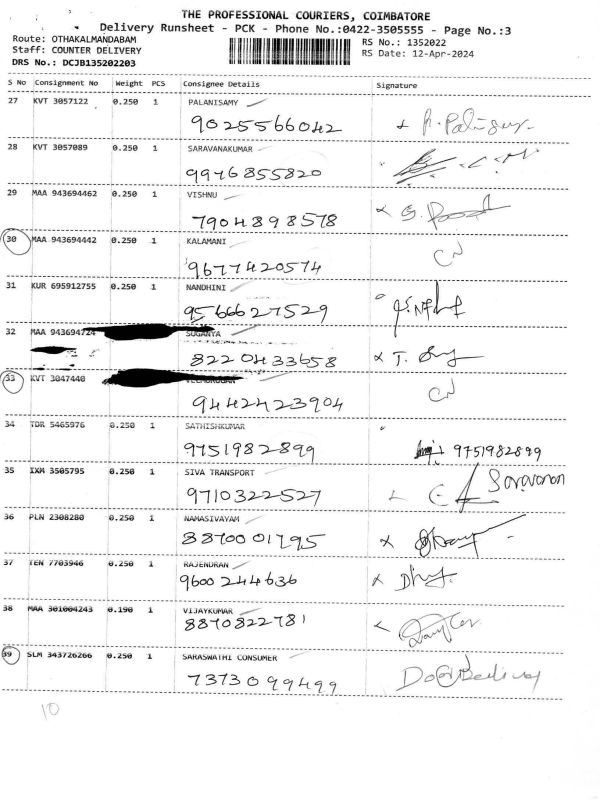 THE PROFESSIONAL COURIERS, COIMBATORE
Delivery Runsheet - PCK - Phone No.:0422-3505555 - Page No.:3
Route: OTHAKALMANDABAM RS No.: 1352022
Staff: COUNTER DELIVERY RS Date: 12-Apr-2024
DRS No.: DCJB135202203
S No Consignment No Weight PCS Consignee Details Signature
27 KVT 3057122 0.250 1 PALANISAMY
9025566042
28 KVT 3057089 0.250 1 SARAVANAKUMAR
9976855820
29 MAA 943694462 0.250 1 VISHNU
7904898578
30 MAA 943694442 0.250 1 KALAMANI
9677420574
31 KUR 695912755 0.250 1 NANDHINI
9566627529
32 MAA 943694724 SUGANYA
8220433658
33 KVT 3047440
9442423904
34 TDR 5465976 0.250 1 SATHISHKUMAR
9751982899 9751982899
35 IXM 3505795 0.250 1 SIVA TRANSPORT
9710322527 Saravanan
36 PLN 2308280 0.250 1 NAMASIVAYAM
8870001795
37 TEN 7703946 0.250 1 RAJENDRAN
9600244636
38 MAA 301004243 0.190 1 VIJAYKUMAR
8870822781
39 SLM 343726266 0.250 1 SARASWATHI CONSUMER
7373099499
10